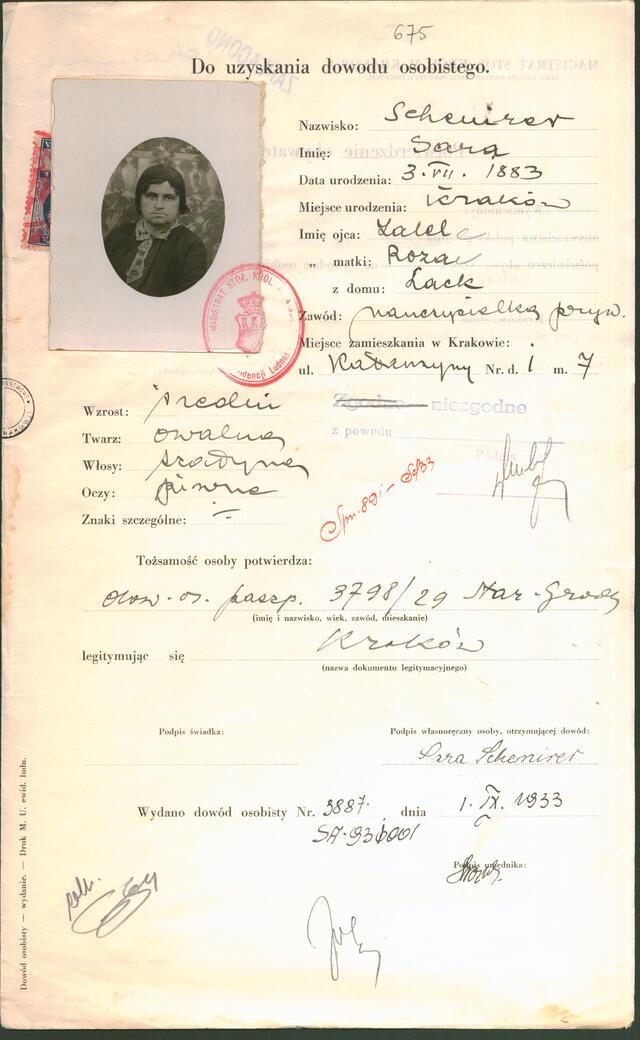 675
Do uzyskania dowodu osobistego.
Nazwisko: Schenirer
Imię: Sara
Data urodzenia: 3. VII. 1883
Miejsce urodzenia: Kraków
Imię ojca:
„ matki: Roza
z domu: Lack
Zawód: nauczycielka pryw.
Miejsce zamieszkania w Krakowie:
ul. Katarzyny Nr. d. 1 m. 7
MAGISTRAT STOŁ. KRÓL.
Zgodne — niezgodne
z powodu
Podpis
Wzrost: średni
Twarz: owalna
Włosy: szatynka
Oczy: piwne
Znaki szczególne: ÷
Tożsamość osoby potwierdza:
dow. os. paszp. 3798/29 Star. Grodz
(imię i nazwisko, wiek, zawód, mieszkanie)
legitymując się Kraków
(nazwa dokumentu legitymacyjnego)
Podpis świadka:
Podpis własnoręczny osoby, otrzymującej dowód:
Sara Schenirer
Wydano dowód osobisty Nr. 3887. dnia 1. IX. 1933
Podpis urzędnika:
Dowód osobisty — wydanie. — Druk M. U. ewid. ludn.